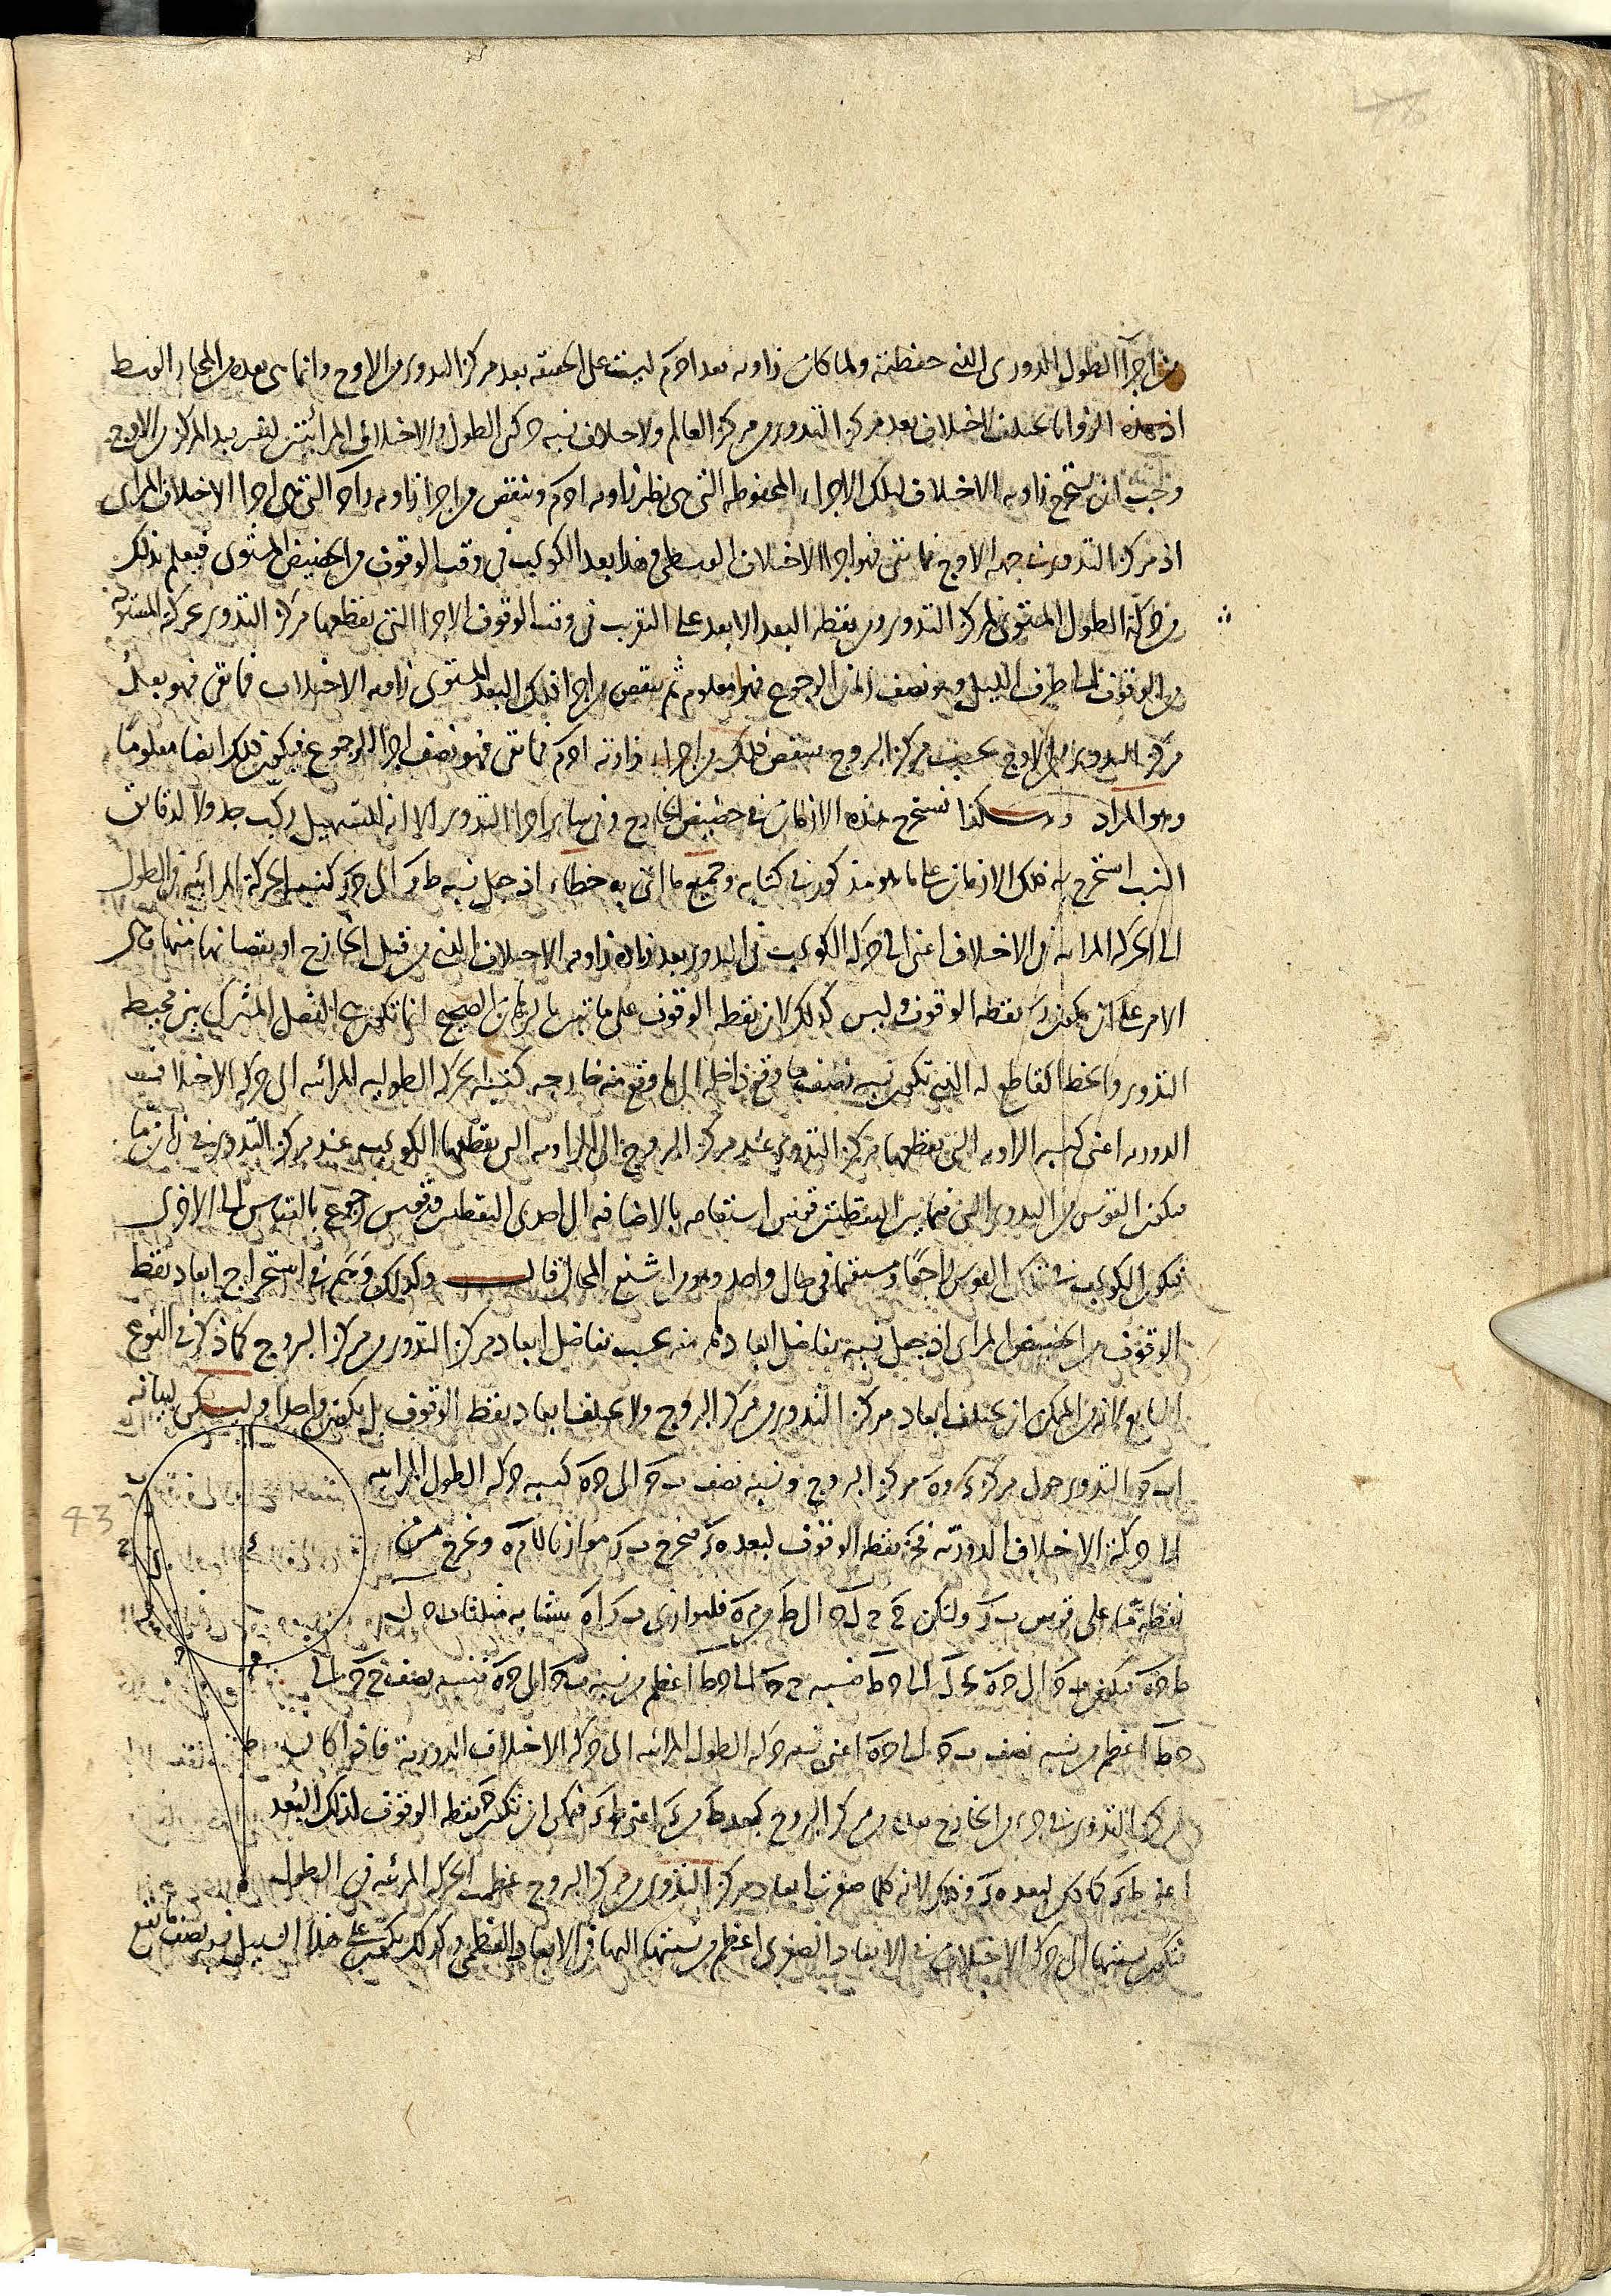 من اجزآ الطول الدورى التى حفظته ولما كان زاويه بعد ا د م ليست على الحقيقه بعد مركز التدوير من الاوج وانما هى بعده من المجاز الوسط
اذ هذه الزوايا يختلف لاختلاف بعد مركز التدوير من مركز العالم ولاختلاف نسبه حركتى الطول والاختلاف المرائيتين لتغير بعد المركز من الاوج
وجب ان نستخرج زاويه الاختلاف لتلك الاجزاء المحفوظه التى هى نظير زاويه ا د م وننقص من اجزا زاويه د ا ح التى هى اجزا الاختلاف المراى
اذ مركز التدوير من جهه الاوج فما بقى فهو اجزا الاختلاف الوسطى وهذا بعد الكوكب فى وقت الوقوف من الحضيض المستوى فيعلم بذلك
من حركة الطول المستوى لمركز التدوير ومن نقطه البعد الابعد على التقريب فى وقت الوقوف الاجزا التى يقطعها مركز التدوير بحركته المستويه
من الوقوف الى طرف الليل وهو نصف زمان الرجوع فهو معلوم ثم ننقص من اجزا ذلك البعد المستوى زاويه الاختلاف فما بقى فهو بعد
مركز التدوير من الاوج بحسب مركز البروج ننقص ذلك من اجزاء زاويه ا د م فما بقى فهو نصف اجزا الرجوع فيكون ذلك ايضا معلوما
وهو المراد وهكذا نستخرج هذه الازمان فى حضيض الخارج وفى سائر اجزا التدوير الا انه للتسهيل ركب جدولا لدقائق
النسب استخرج به تلك الازمان على ما هو مذكور فى كتابه وجميع ما اتى به خطاء اذ جعل نسبه ط د الى ح د كنسبه الحركة المرائيه فى الطول
الى الحركه المرائيه فى الاختلاف اعنى الى حركه الكوكب فى التدوير بعد زياده زاويه الاختلاف التى من قبل الخارج او نقصانها منها قال
الامر على ان يكون د نقطه الوقوف وليس كذلك لان نقطه الوقوف على ما تبين بالبرهان الصحيح انما تكون هى الفصل المشترك بين محيط
التدوير والخط القاطع له الذى تكون نسبه نصف ما وقع داخله الى ما وقع منه خارجه كنسبه الحركه الطوليه المرائيه الى حركه الاختلاف
الدوريه اعنى كنسبه الزاويه التى يقطعها مركز التدوير عند مركز البروج الى الزاويه التى يقطعها الكوكب عند مركز التدوير فى زمان ما
فيكون القوس من التدوير التى فيما بين النقطتين قوس استقامه بالاضافه الى احدى النقطتين وقوس رجوع بالقياس الى الاخرى
فيكون الكوكب فى تلك القوس راجعا ومستقيما فى حال واحد وهو من اشنع المحال قال وكذلك وهم فى استخراج ابعاد نقط
الوقوف من الحضيض المراى اذ جعل نسبه تفاضل ابعادها منه بحسب تفاضل ابعاد مركز التدوير من مركز البروج كما ذكر فى النوع
السابع لانه من الممكن ان يختلف ابعاد مركز التدوير من مركز البروج ولا يختلف ابعاد نقط الوقوف بل يكون واحدا وليكن لبيانه
ا ب ح التدوير حول مركز د وه مركز البروج ونسبه نصف ب ح الى ح ه كنسبه حركه الطول المرائيه
الى حركة الاختلاف الدوريه فح نقطه الوقوف لبعد ه د فنخرج ب ز موازيا لا د ه ونخرج من
نقطه ما على قوس ب ز ولتكن ح ح ل ح الى ط من م ه فلتوازى ب ز ا ه يتشابه مثلثات ب ح ل
ط ح ه فيكون ب ح الى ح ه كـ ل ح الى ح ط فنسبه ح ح الى ح ط اعظم من نسبه ب ح الى ح ه فنسبه نصف ح ح الى
ح ط اعظم من نسبه نصف ب ح الى ح ه اعنى نسبه حركه الطول المرائيه الى حركه الاختلاف الدوريه فاذا كان
مركز التدوير فى جزء من الخارج بعده من مركز البروج كبعد ط من د اعنى ط د فيمكن ان تكون ح نقطه الوقوف لذلك البعد
اعنى ط د كما كان لبعد ه د وذلك لانه كلما صغرت ابعاد مركز التدوير من مركز البروج عظمت الحركه المرئيه فى الطول
فتكون نسبتها الى حركه الاختلاف فى الابعاد الصغرى اعظم من نسبتها اليها فى الابعاد العظمى وكذلك يكون على هذا السبيل نسبه نصف ما يقع
43